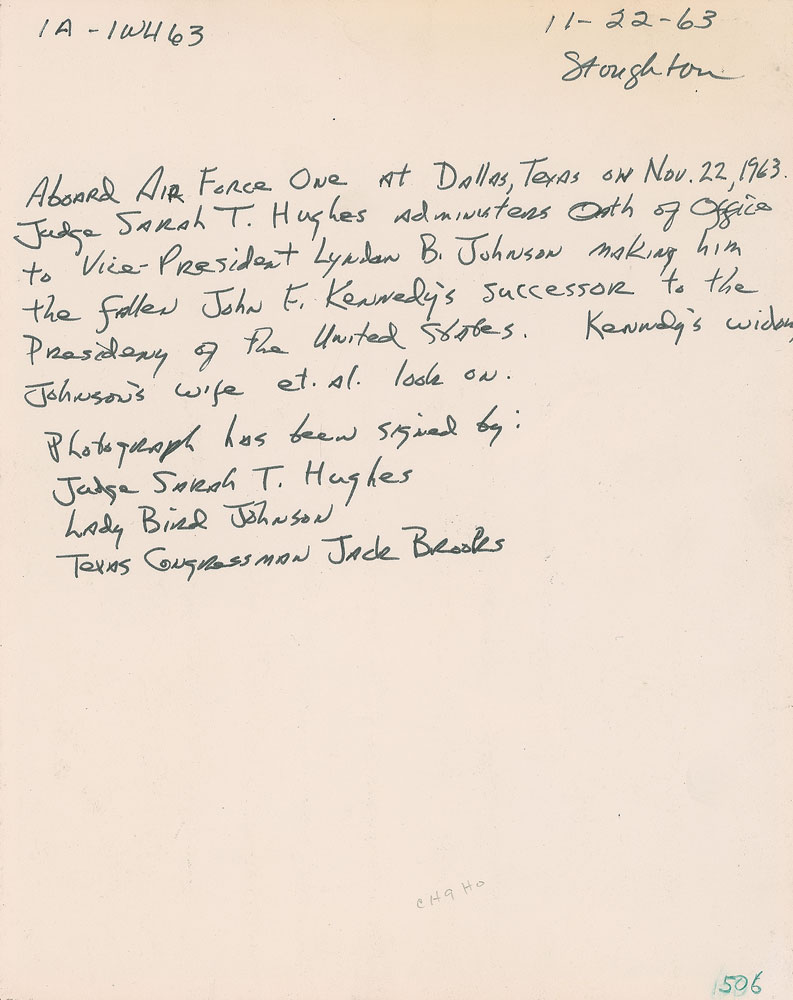 1A-1WH63
11-22-63
Stoughton
Aboard Air Force One at Dallas, Texas on Nov. 22, 1963.
Judge Sarah T. Hughes administers Oath of Office
to Vice-President Lyndon B. Johnson making him
the fallen John F. Kennedy's successor to the
Presideny of the United States. Kennedy's widow,
Johnson's wife et. al. look on.
Photograph has been signed by:
Judge Sarah T. Hughes
Lady Bird Johnson
Texas Congressman Jack Brooks
CH9HO
1506